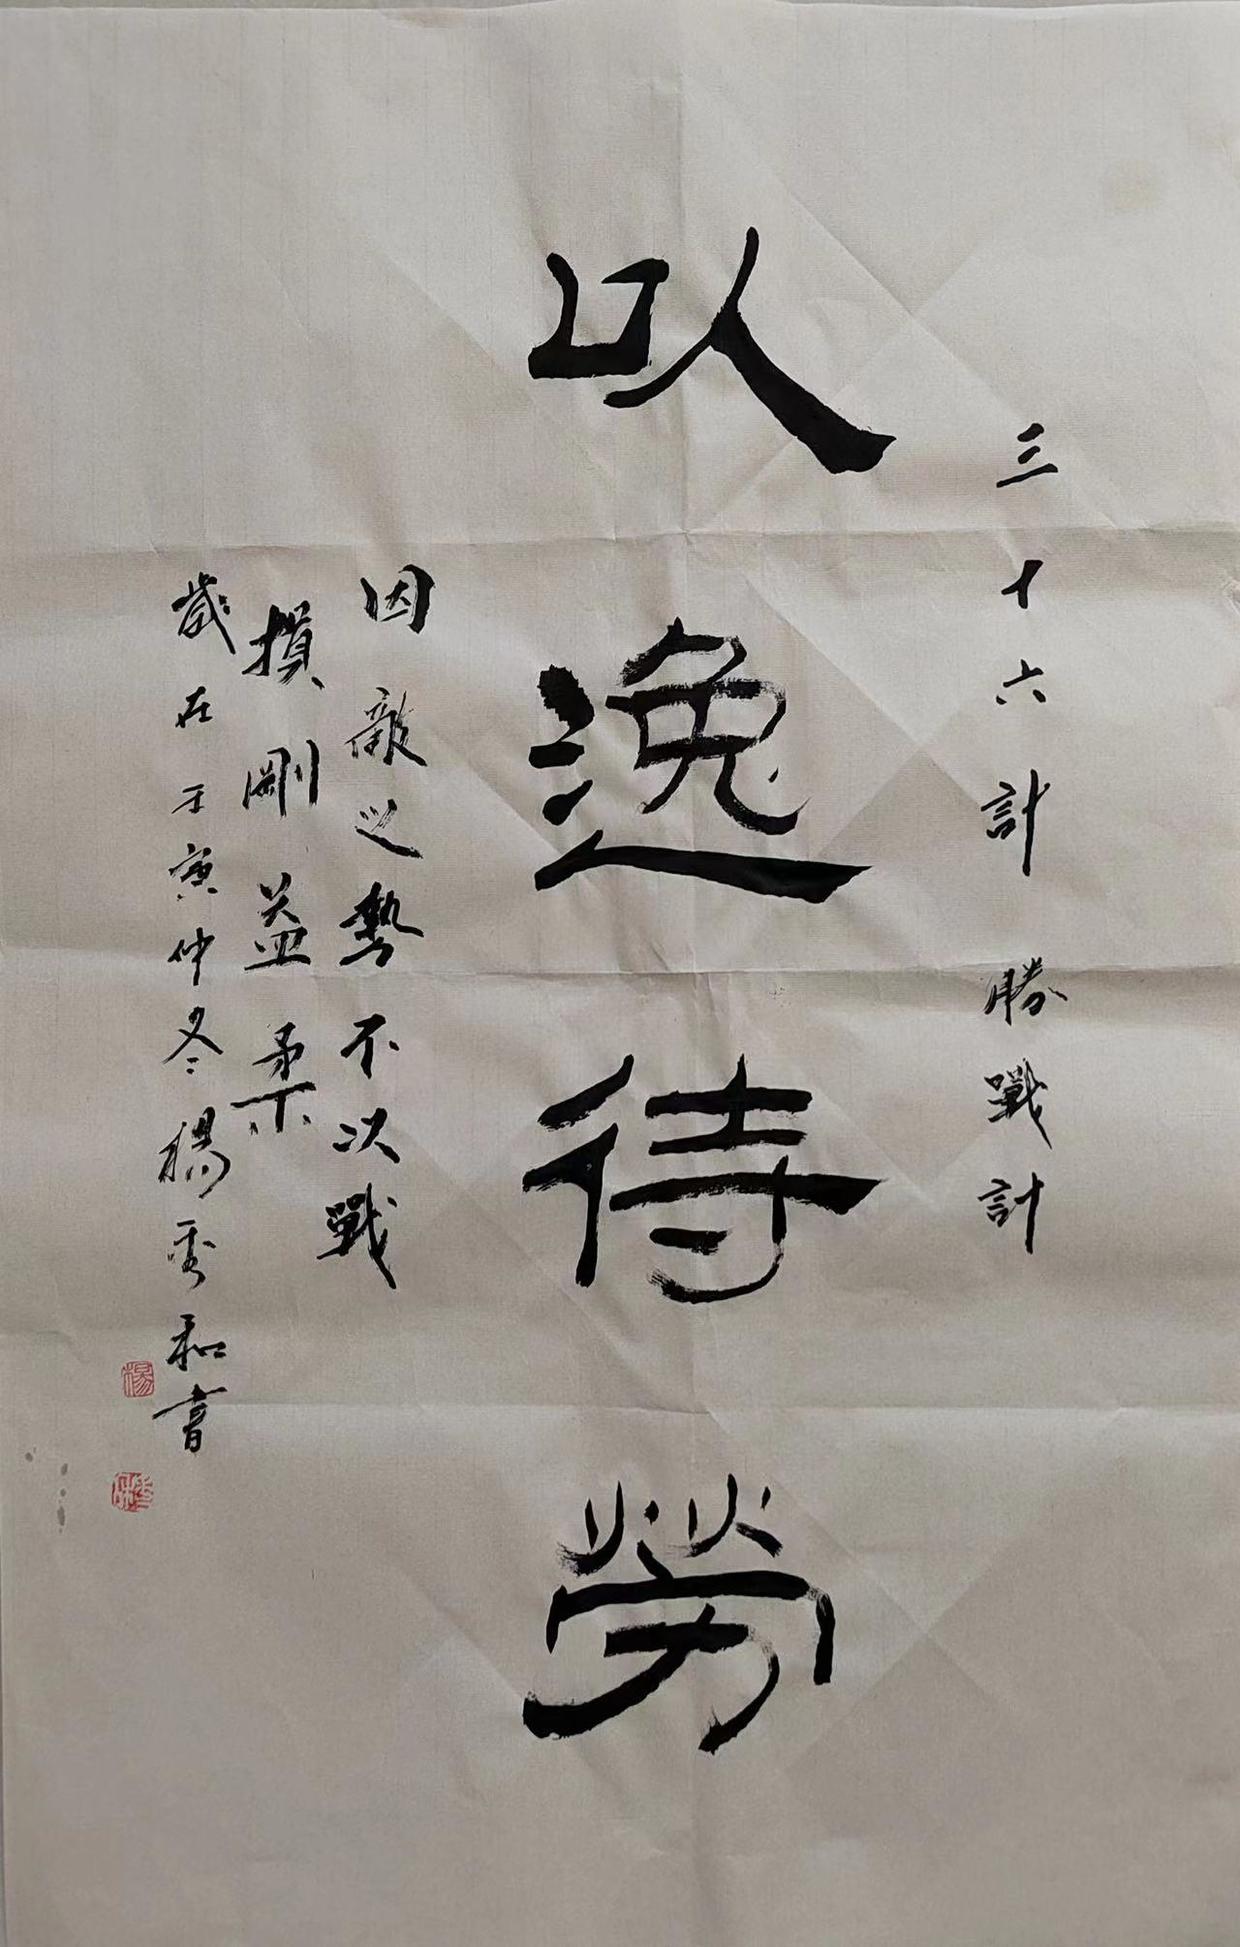 三十六計 勝戰計
以逸待勞
因敵之勢不以戰
損剛益柔
歲在壬寅仲冬楊秀和書
楊
秀和